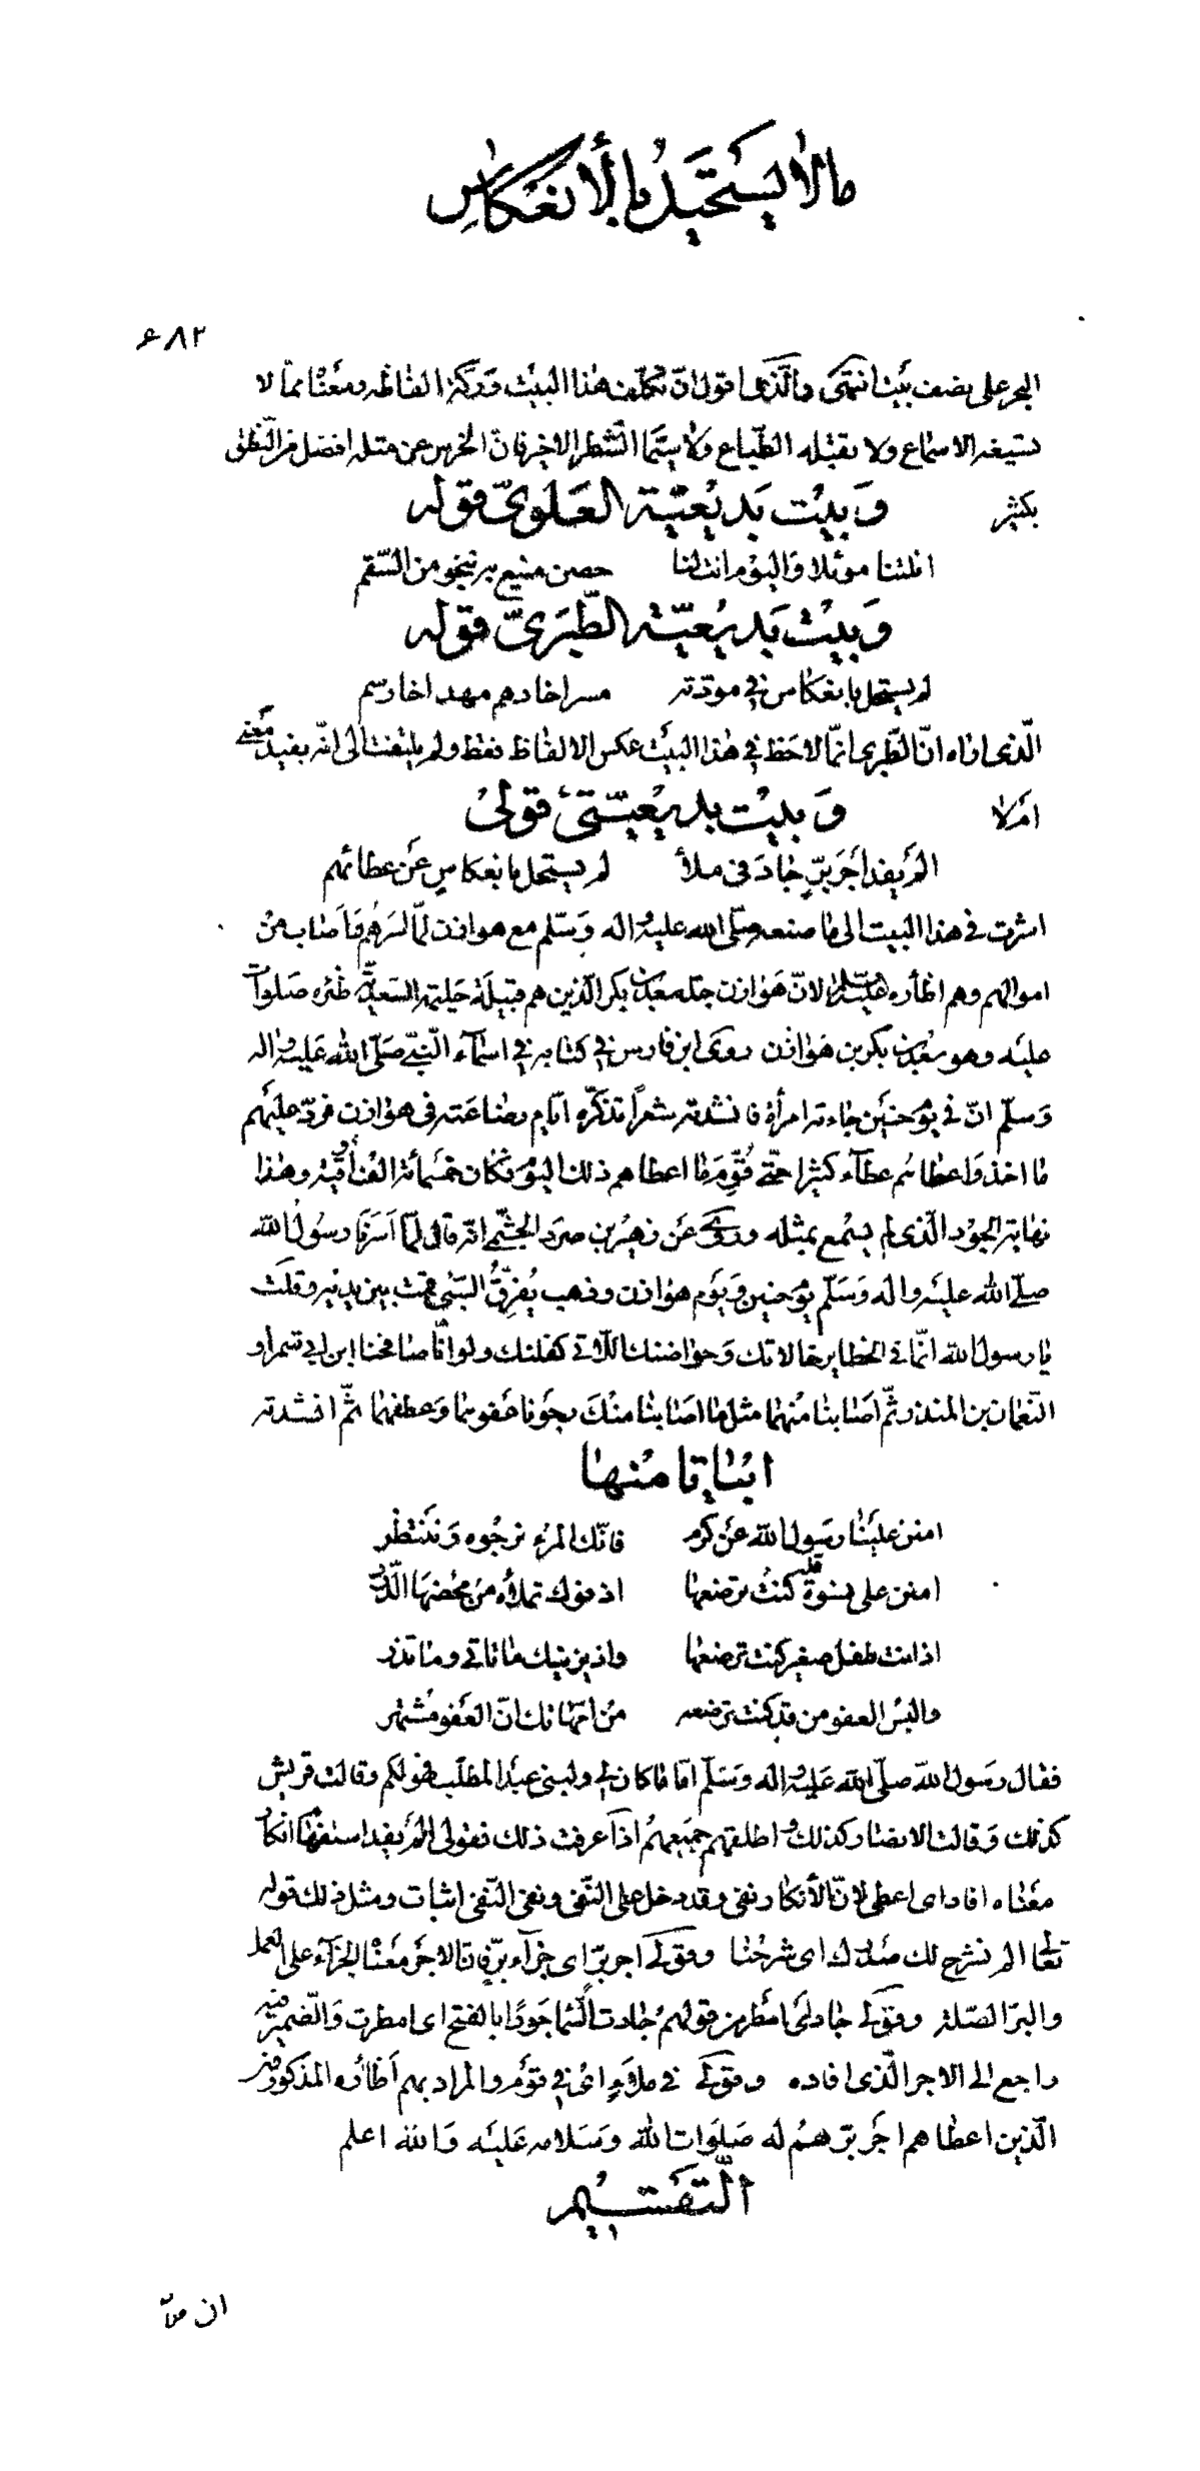 ما لا يستحيل بالانعكاس
۶۸۲
البحر على نصف بيت انتهى والذى اقول ان تكلف هذا البيت وركة الفاظه ومعناه مما لا
تستيغه الاسماع ولا تقبله الطباع ولا سيما الشطر الاخير فان الخرس عن مثله افضل من النطق
بكثير
وَبيْت بَديعيّة العَلوىّ قوله
انلتنا موئلا واليوم انت لنا حصن منيع به ننجو من السّقم
وَبيْت بَديعيّة الطّبَرىّ قوله
لم يستحل بانعكاس فى مودّته مسر اخا دهم مهد اخا رسم
الّذى اراه انّ الطّبرى انّما لاحظ فى هذا البيت عكس الالفاظ فقط ولم يلتفت الى انّه يفيد معنى
ام لا
وَبيْت بديعيّتى قولى
الم يفد اجر برّ جاد فى ملأ لم يستحل بانعكاس عن عطائهم
اشرت فى هذا البيت الى ما صنعه صلّى الله عليه واله وسلّم مع هوازن لمّا اسرهم واصاب من
اموالهم وهم اظآره لانّ هوازن جدّ سعد بن بكر الّذين هم قبيلة حليمة السّعديّة ظئره صلوات
عليه وهو سعد بن بكر بن هوازن روى ابن فارس فى كتابه فى اسماء النّبىّ صلّى الله عليه واله
وسلّم انّ فى يوم حنين جاءته امرأة فانشدته شعراً تذكّره ايّام رضاعته فى هوازن فردّ عليهم
ما اخذ واعطاهم عطاء كثيرا حتّى قُوّم ما اعطاهم ذلك اليوم فكان خمسمائة الف اوقية وهذا
نهاية الجود الّذى لم يسمع بمثله وروى عن زهير بن صرد الجشمى انّه قال لمّا اسرنا رسول الله
صلّى الله عليه واله وسلّم يوم حنين ويوم هوازن وذهب يفرّق السّبى قمت بين يديه وقلت
يا رسول الله انّما فى الحظاير خالاتك وحواضنك اللّاتى كفلنك ولو انّا صافحنا ابن ابى شمر او
النّعمان بن المنذر ثمّ اصابنا منهما مثل ما اصابنا منك رجونا عفوهما وعطفهما ثمّ انشدته
ابياتا منها
امنن علينا رسول الله عن كرم فانّك المرء نرجوه وننتظر
امنن على نسوة قد كنت ترضعها اذ فوك تملأه من محضها الدّرر
اذ انت طفل صغير كنت ترضعها واذ يزينك ما تاتى وما تذر
والبس العفو من قد كنت ترضعه من امّهاتك انّ العفو مشتهر
فقال رسول الله صلّى الله عليه واله وسلّم امّا ما كان لى ولبنى عبد المطّلب فهو لكم وقالت قريش
كذلك وقالت الانصار كذلك واطلقهم جميعهم اذا عرفت ذلك فقولى الم يفد استفهام انكار
معناه افاد اى اعطى لانّ الأنكار نفى وقد دخل على النّفى ونفى النّفى اثبات ومثل ذلك قوله
تعالى الم نشرح لك صدرك اى شرحنا وقولى اجر برّ اى جزاء برّ فانّ الاجر معناه الجزاء على العمل
والبرّ الصّلة وقولى جاد اى امطر من قولهم جادت السّماء جودًا بالفتح اى امطرت والضّمير فيه
راجع الى الاجر الّذى افاده وقولى فى ملأ اى فى قوم والمراد بهم اظآره المذكورين
الّذين اعطاهم اجر برّهم له صلوات الله وسلامه عليه والله اعلم
التّقسيم